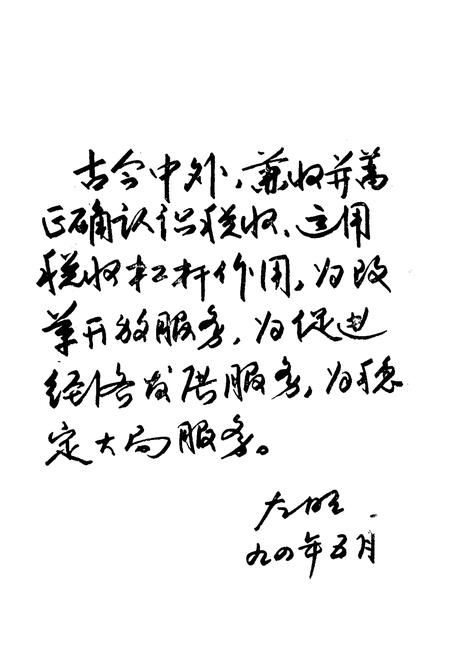 古今中外,兼收并蓄
正确认识税收、运用
税收杠杆作用,为改
革开放服务,为促进
经济发展服务,为稳
定大局服务。
九四年五月